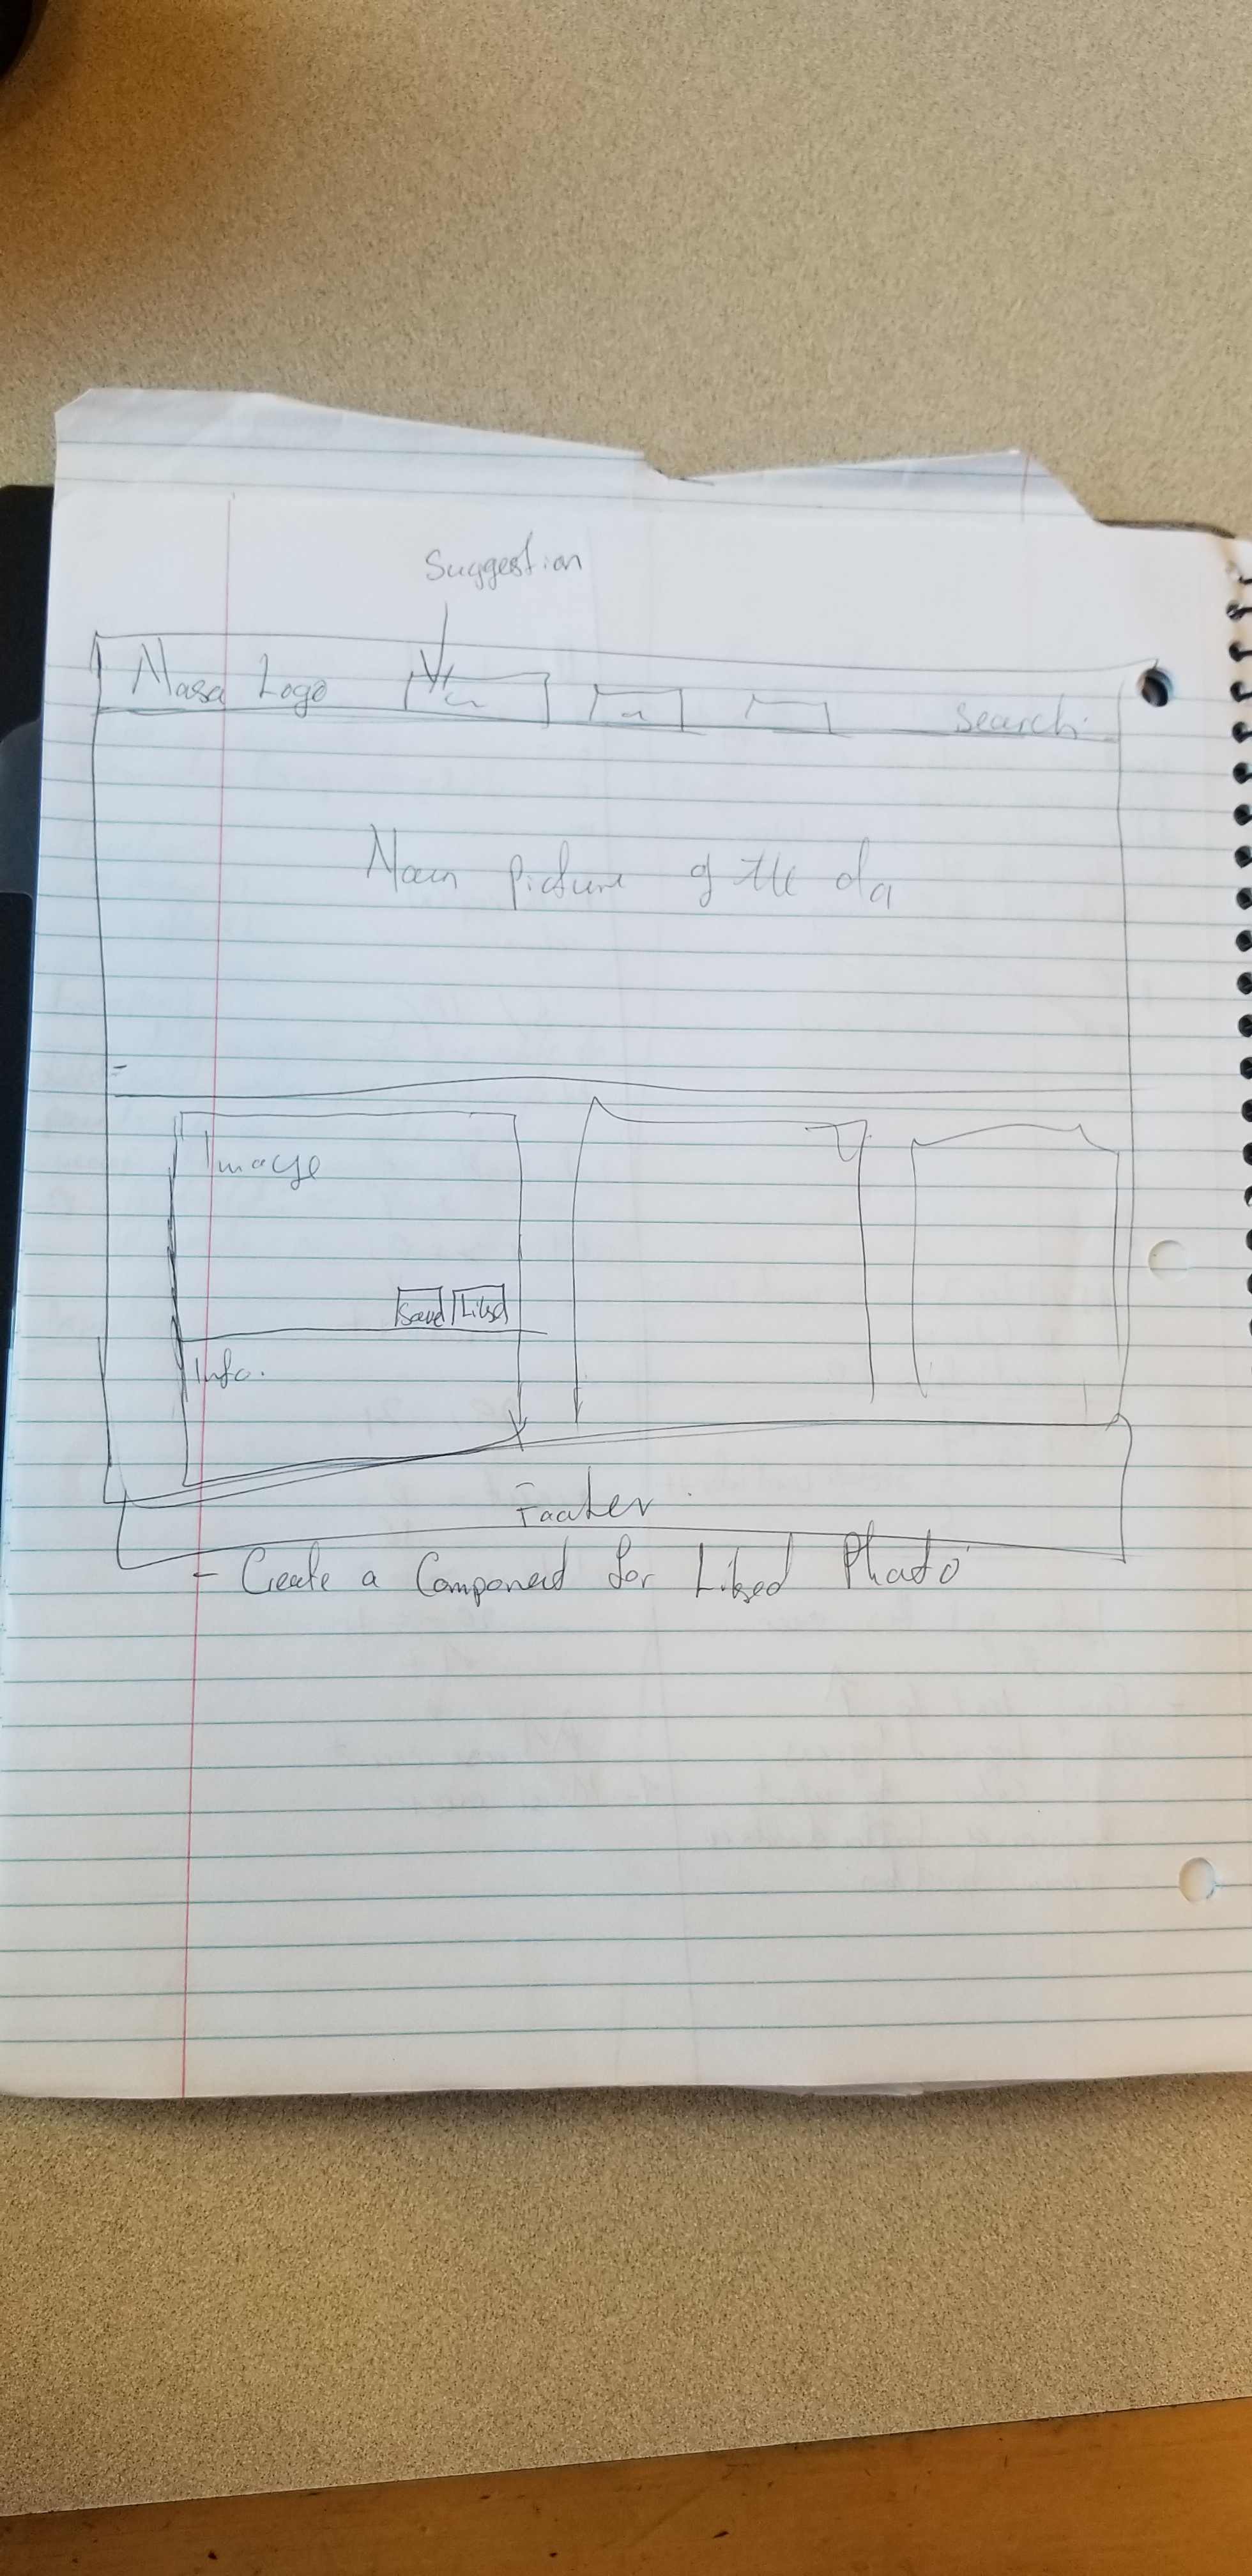 Suggestion
Nasa Logo
Search
Main picture of the da
Image
Save Liked
Info.
Footer
- Create a Component for Liked Photo